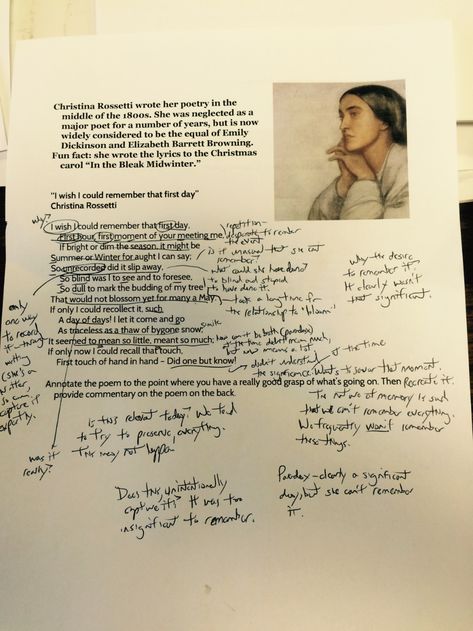 Christina Rossetti wrote her poetry in the
middle of the 1800s. She was neglected as a
major poet for a number of years, but is now
widely considered to be the equal of Emily
Dickinson and Elizabeth Barrett Browning.
Fun fact: she wrote the lyrics to the Christmas
carol "In the Bleak Midwinter."
"I wish I could remember that first day"
Christina Rossetti
why?
I wish I could remember that first day.
First hour, first moment of your meeting me,
If bright or dim the season, it might be
Summer or Winter for aught I can say;
So unrecorded did it slip away,
So blind was I to see and to foresee,
So dull to mark the budding of my tree
That would not blossom yet for many a May.
If only I could recollect it, such
A day of days! I let it come and go
As traceless as a thaw of bygone snow;
It seemed to mean so little, meant so much;
If only now I could recall that touch,
First touch of hand in hand – Did one but know!
repetition-
desperate to
the event
is it unusual that she can't
remember?
what could she have done?
to blind and stupid
to have done it.
take a long time for
the relationship to "bloom"
simile
how can't be both (paradox)
at the time didn't mean much,
but now means a lot
didn't understand
the significance. Wants to savor that moment.
of the time
Recreate it.
why the desire
to remember it.
It clearly wasn't
that significant.
only
one way
to record
it - through
writing
(she's a
writer,
so can
capture it
expertly.
was it
really?
Annotate the poem to the point where you have a really good grasp of what's going on. Then
provide commentary on the poem on the back.
Is this relevant today? We tend
to try to preserve everything.
This may not happen
The nature of memory is such
that we can't remember everything.
We frequently won't remember
these things.
Does this unintentionally
capture it? It was too
insignificant to remember.
Paradox - clearly a significant
day, but she can't remember
it.